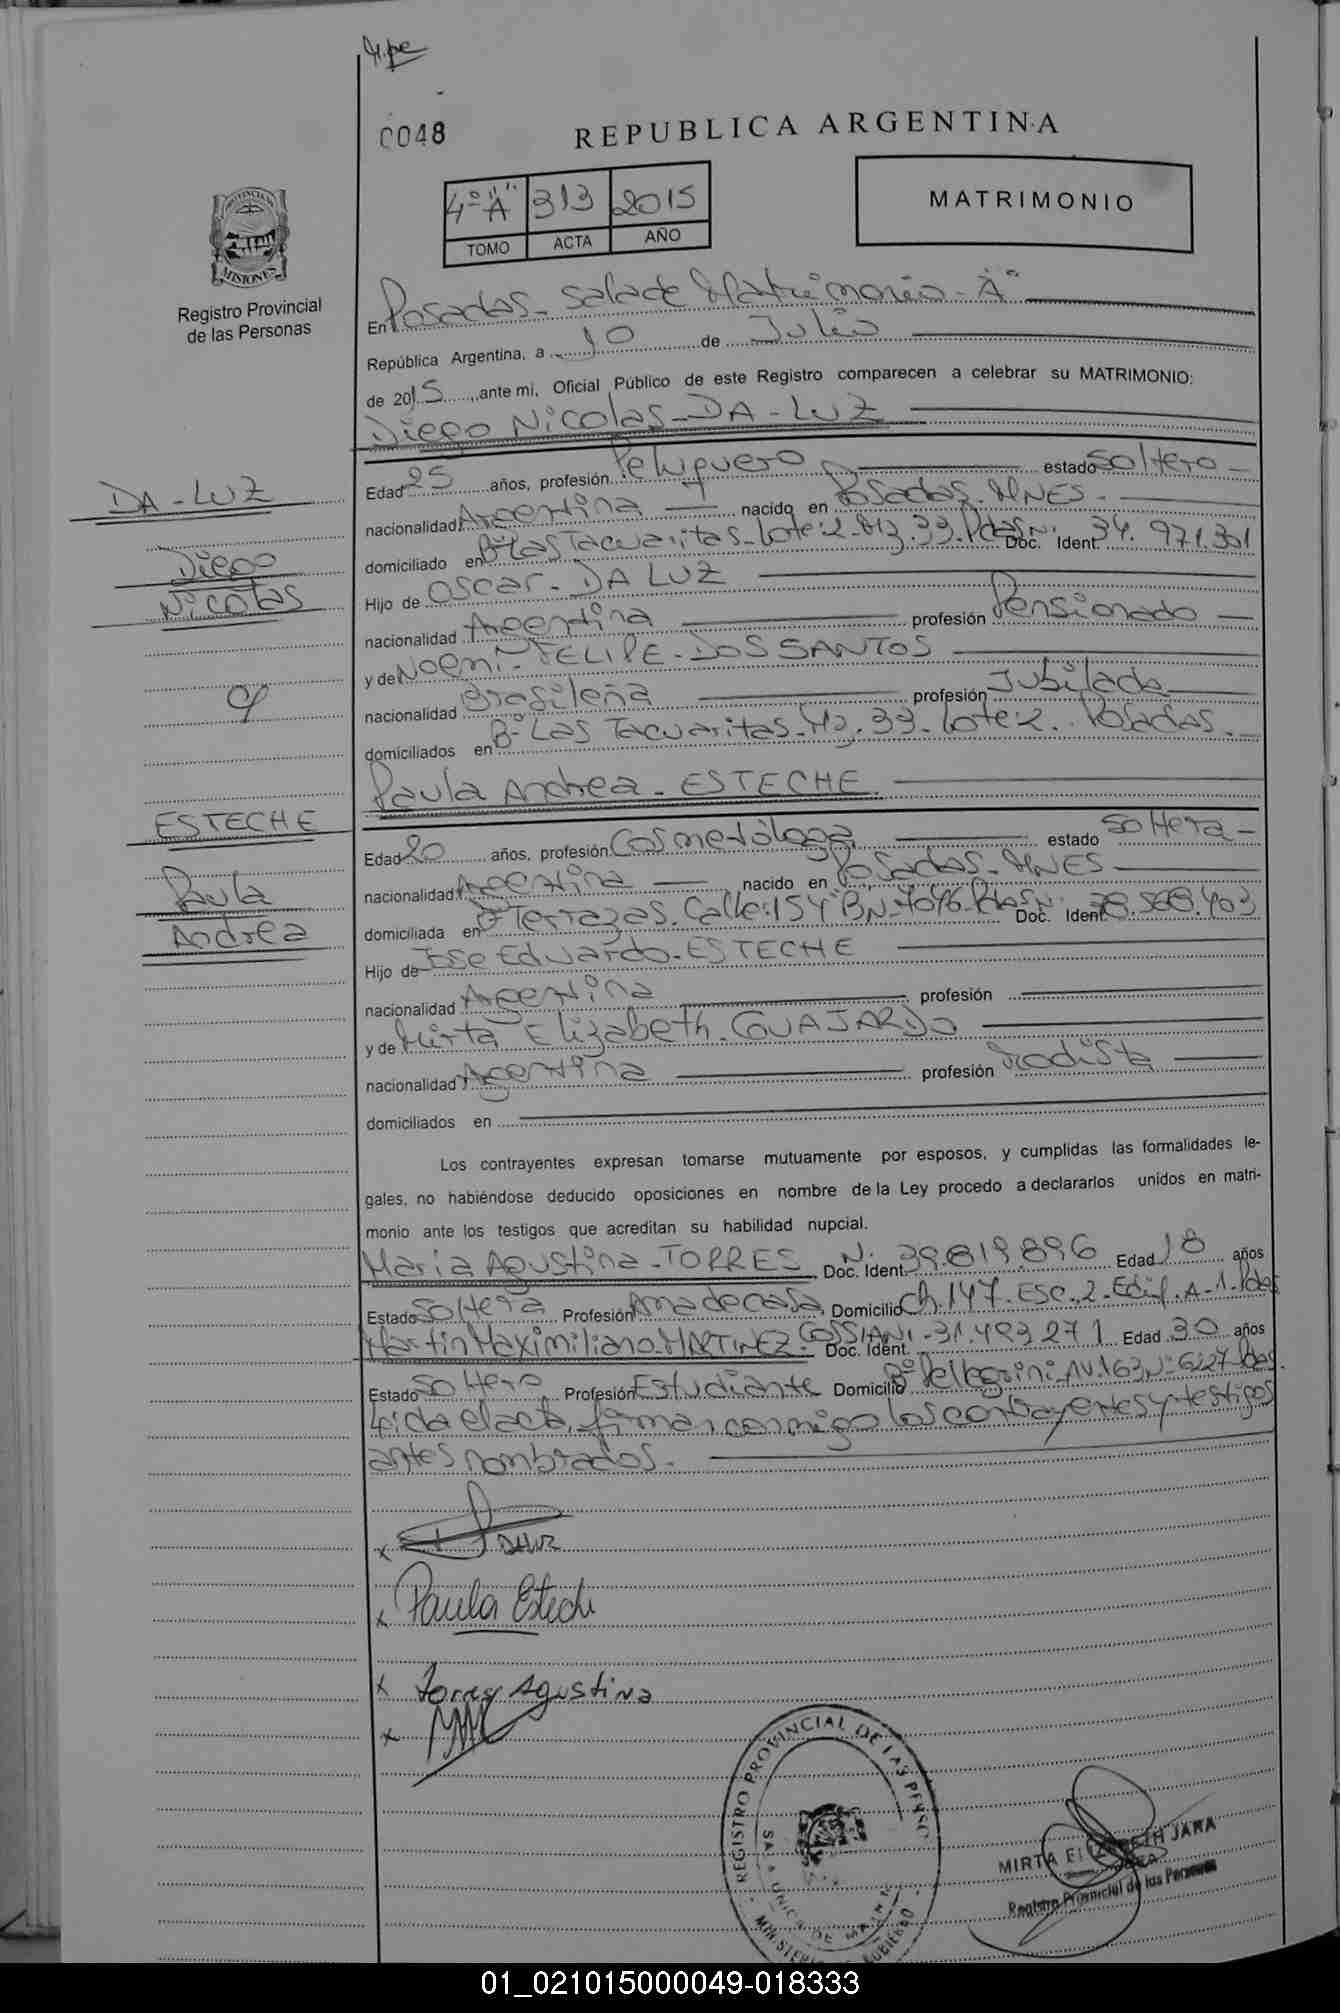 0048
REPUBLICA ARGENTINA
4º "A" 313 2015
TOMO ACTA AÑO
MATRIMONIO
PROVINCIA DE MISIONES
Registro Provincial
de las Personas
En Posadas - Sala de Matrimonio - "A"
República Argentina, a 10 de Julio
de 2015, ante mi, Oficial Público de este Registro comparecen a celebrar su MATRIMONIO:
Diego Nicolas - DA - LUZ
DA - LUZ
Diego
Nicolas
Edad 25 años, profesión Peluquero estado Soltero
nacionalidad Argentina nacido en Posadas - MNES.
domiciliado en Bº Las Tacuaritas - Lote: 2 - Mz. 33. Pdas Doc. Ident. Nº 34.971.301
Hijo de Oscar - DA LUZ
nacionalidad Argentina profesión Pensionado
y de Noemi - FELIPE - DOS SANTOS
nacionalidad Brasileña profesión Jubilada
domiciliados en Bº Las Tacuaritas - Mz. 33 - Lote: 2. Posadas.
Paula Andrea - ESTECHE
ESTECHE
Paula
Andrea
Edad 20 años, profesión Cosmetóloga estado Soltera
nacionalidad Argentina nacido en Posadas - MNES
domiciliada en Terrazas. Calle: 154 "B" Nº 7046. Pdas Doc. Ident. Nº 38.568.403
Hijo de Jose Eduardo - ESTECHE
nacionalidad Argentina profesión
y de Mirta Elizabeth. GUAJARDO
nacionalidad Argentina profesión Modista
domiciliados en
Los contrayentes expresan tomarse mutuamente por esposos, y cumplidas las formalidades le-
gales, no habiéndose deducido oposiciones en nombre de la Ley procedo a declararlos unidos en matri-
monio ante los testigos que acreditan su habilidad nupcial.
Maria Agustina - TORRES Doc. Ident. Nº 39.819.896 Edad 18 años
Estado Soltera Profesión Ama de casa Domicilio Ch. 147. Esc. 2. Edif. A - 1. Pdas
Martin Maximiliano. MARTINEZ. COSSIANI Doc. Ident. 31.493.271 Edad 30 años
Estado Soltero Profesión Estudiante Domicilio Bº Pellegrini - AV. 163 Nº 6227 Pdas.
Leida el acta, firman conmigo los contrayentes y testigos
antes nombrados.
x DALUZ
x Paula Esteche
x Torres Agustina
x
REGISTRO PROVINCIAL DE LAS PERSO
SALA UNICA DE MATRIM
MINISTERIO GOBIERNO
MIRTA ELIZABETH JARA
Registro Provincial de las Personas
01_021015000049-018333